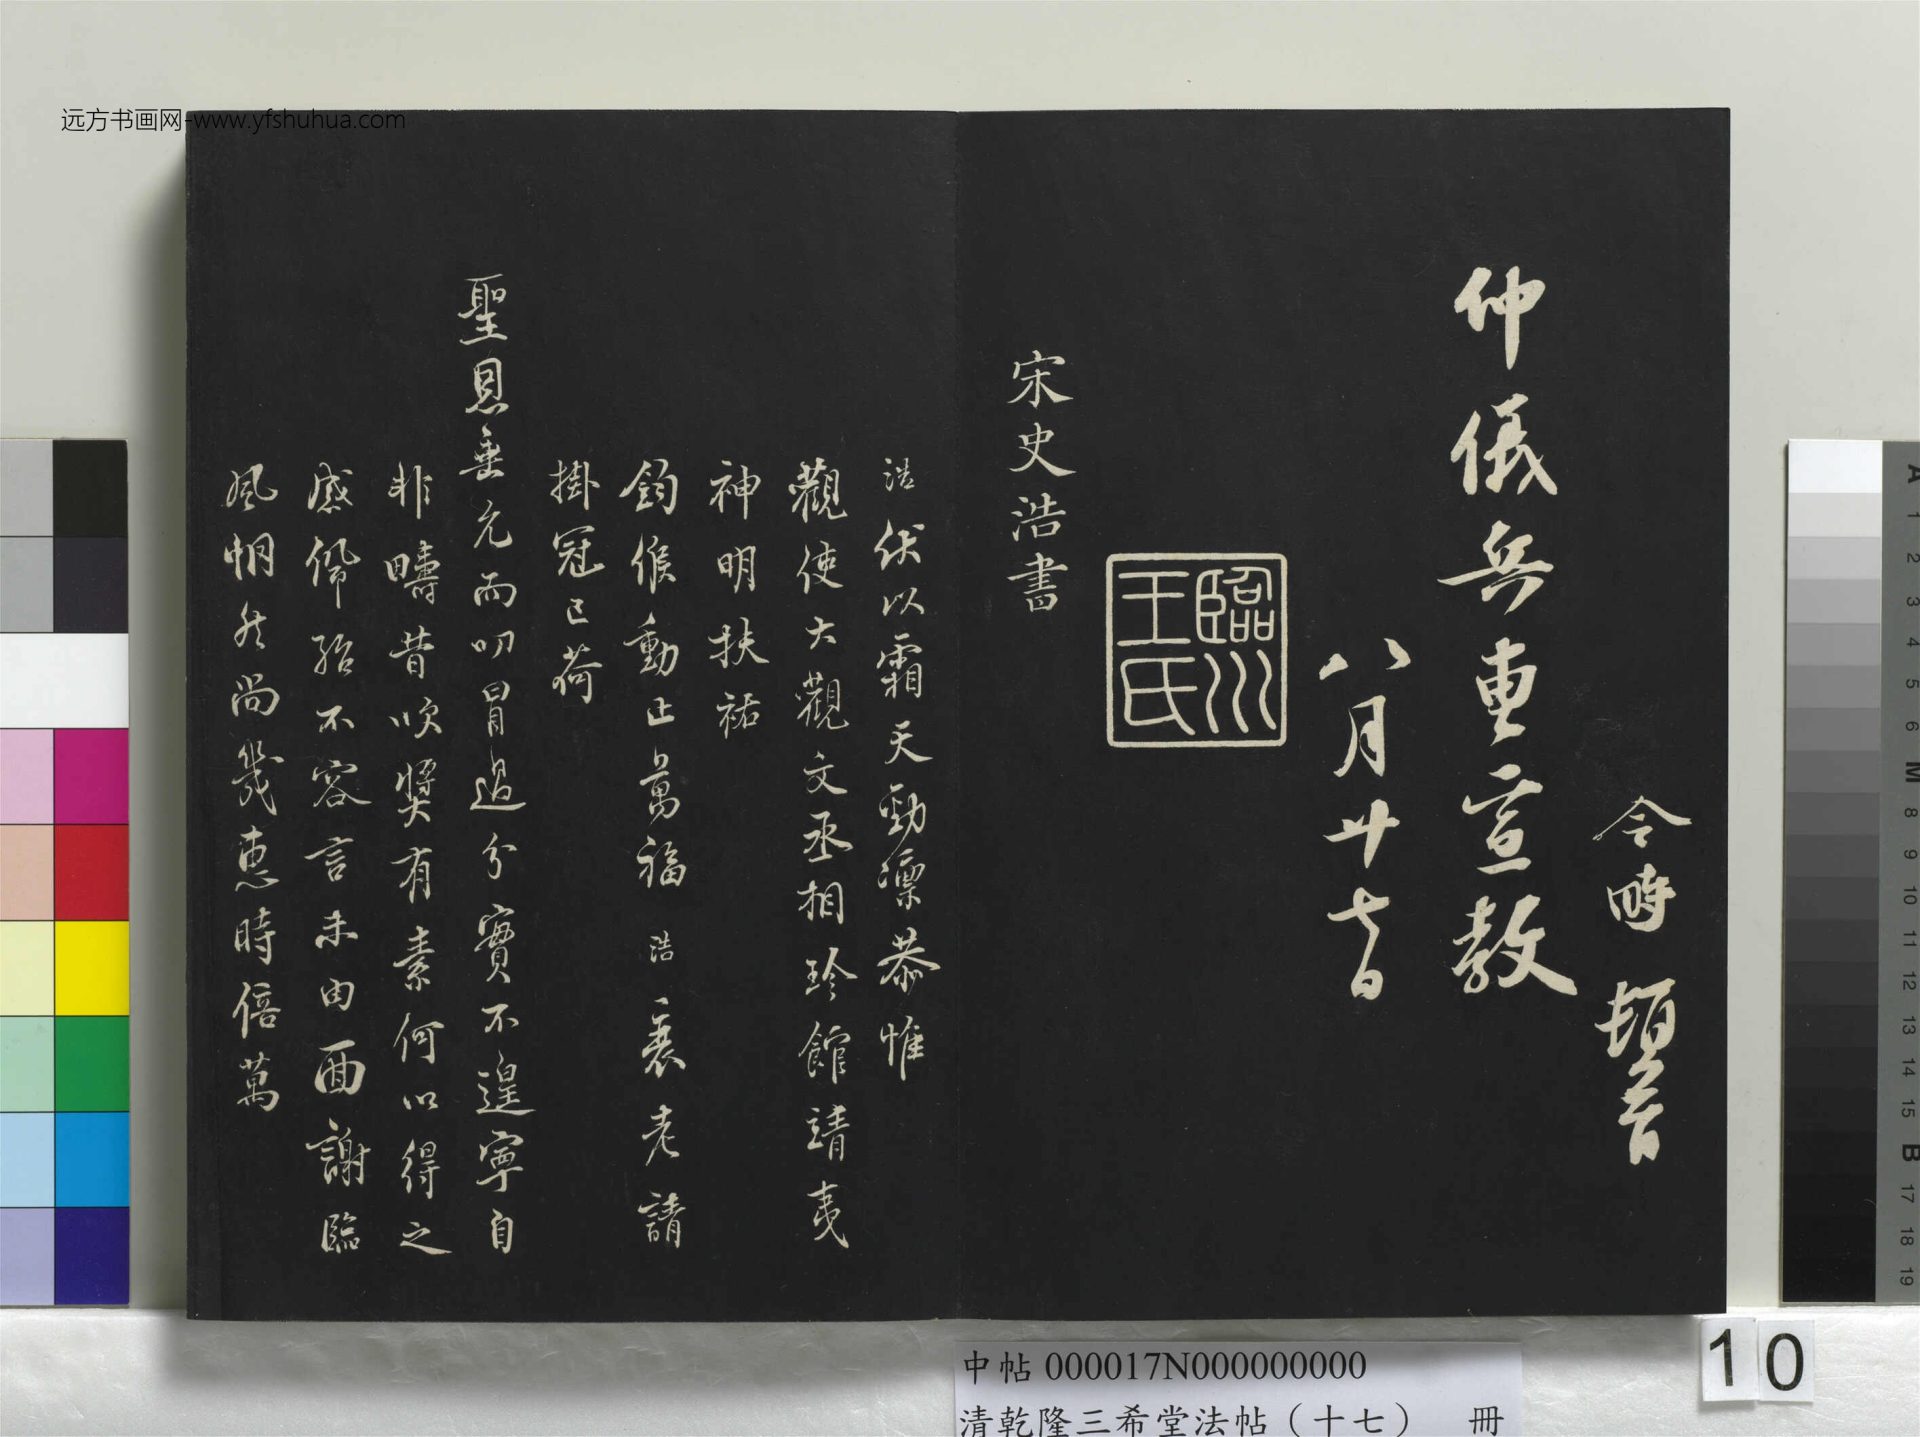 远方书画网-www.yfshuhua.com
令畤 頓首
仲儀兵曹宣教
八月廿七日
臨川
王氏
宋史浩書
浩伏以霜天勁凜恭惟
觀使大觀文丞相珍館靖夷
神明扶祐
鈞候動止萬福浩衰老請
掛冠已荷
聖恩垂允而叨冒過分實不遑寧自
非疇昔吹獎有素何以得之
感佩殆不容言未由面謝臨
風惘然尚幾惠時倍萬
中帖 000017N000000000
清乾隆三希堂法帖（十七） 冊
10
A
1
2
3
4
5
6
M
8
9
10
11
12
13
14
15
B
17
18
19